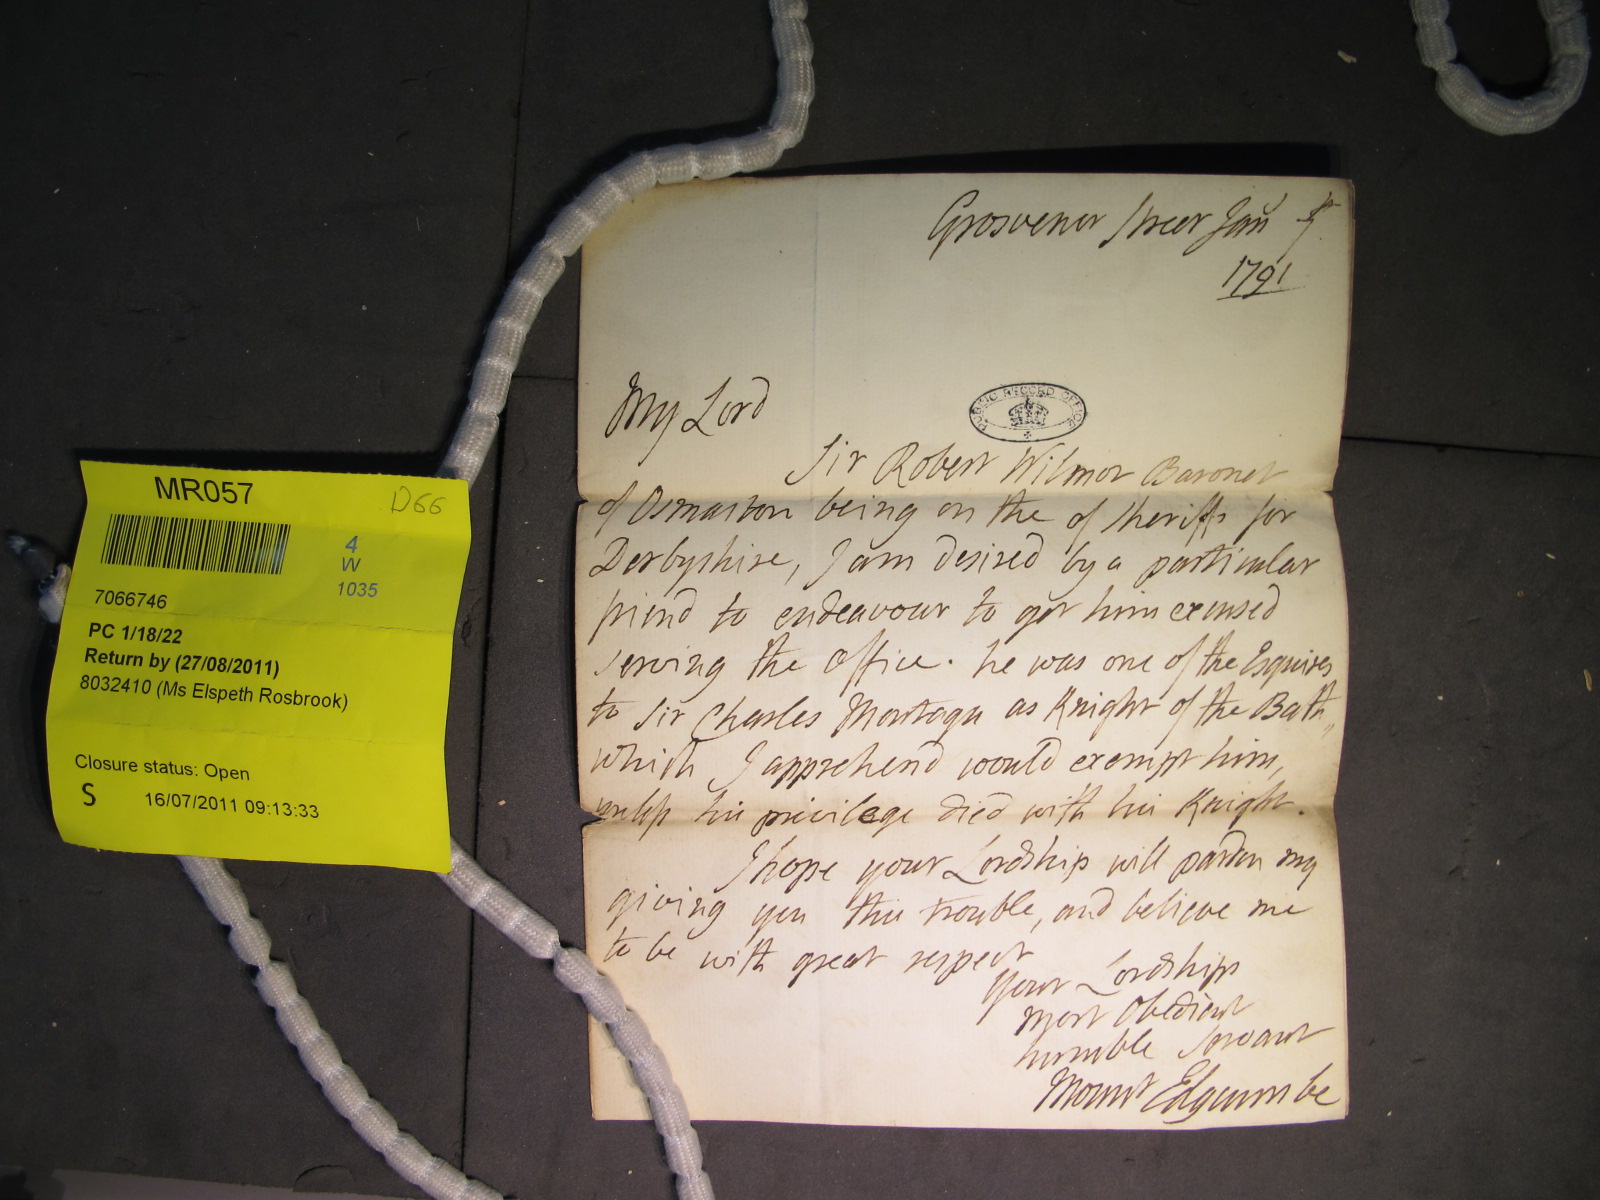 Grosvenor Street Jan
1791
My Lord
PUBLIC RECORD OFFICE
Sir Robert Wilmot Baronet
of Osmaston being on the of Sheriffs for
Derbyshire, I am desired by a particular
friend to endeavour to get him excused
serving the Office. he was one of the Esquires
to Sir Charles Montagu as Knight of the Bath,
which I apprehend would exempt him,
unless his privilege died with his Knight.
I hope your Lordship will pardon my
giving you this trouble, and believe me
to be with great respect
Your Lordships
Most Obedient
humble Servant
Mount Edgcumbe
MR057
D66
4
W
1035
7066746
PC 1/18/22
Return by (27/08/2011)
8032410 (Ms Elspeth Rosbrook)
Closure status: Open
S 16/07/2011 09:13:33